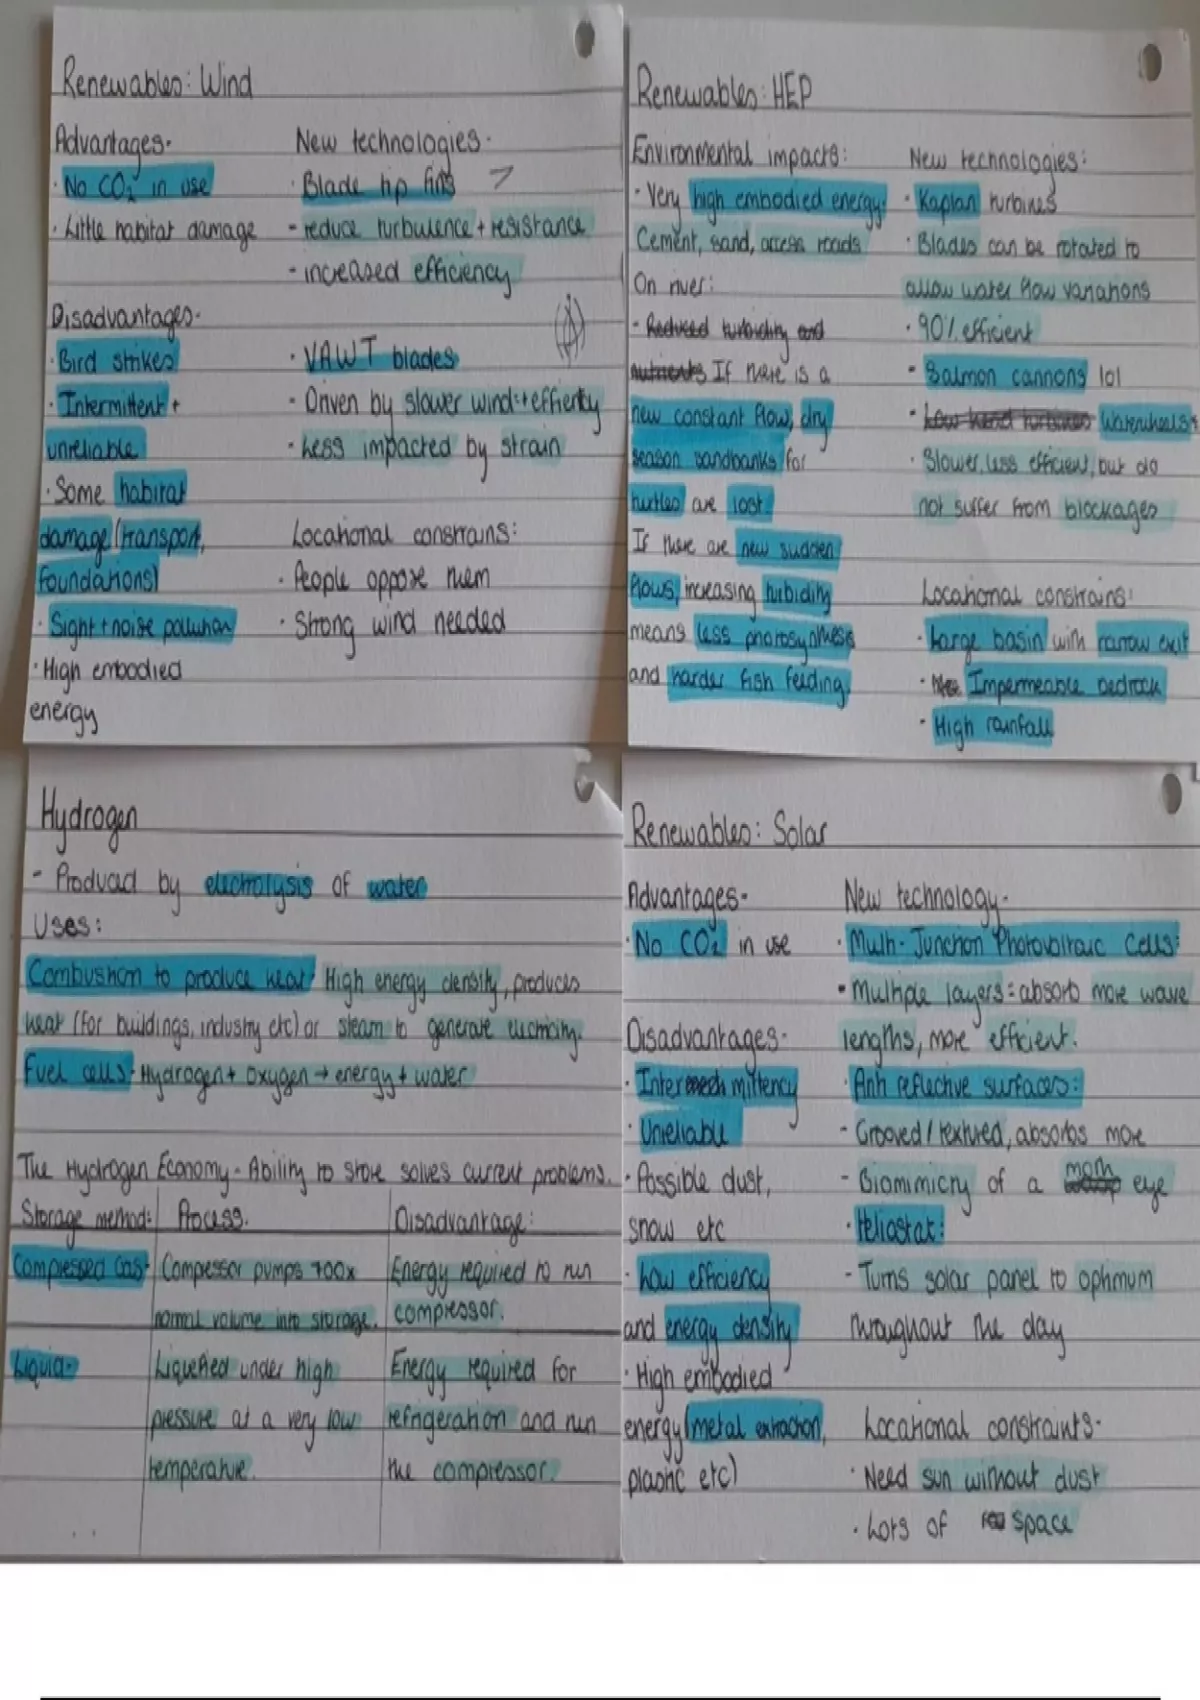 Renewables: Wind
Advantages-
· No CO2 in use
· Little habitat damage
Disadvantages-
· Bird strikes
· Intermittent +
unreliable
· Some habitat
damage (transport,
foundations)
· Sight + noise pollution
· High embodied
energy
New technologies-
· Blade tip fins
- reduce turbulence + resistance
- increased efficiency
· VAWT blades
- Driven by slower wind:+efficiently
· Less impacted by strain
Locational constrains:
· People oppose them
· Strong wind needed
Renewables: HEP
Environmental impacts:
· Very high embodied energy:
Cement, sand, access roads
On river:
- Reduced turbidity and
nutrients If there is a
new constant flow, dry
season sandbanks for
turtles are lost
If there are new sudden
flows, increasing turbidity
means less photosynthesis
and harder fish feeding.
New technologies:
· Kaplan turbines
· Blades can be rotated to
allow water flow variations
· 90% efficient
· Salmon cannons lol
· Low head turbines Waterwheels:
· Slower, less efficient, but do
not suffer from blockages
Locational constrains:
· Large basin with narrow exit
· Impermeable bedrock
· High rainfall
Hydrogen
- Produced by electrolysis of water
Uses:
Combustion to produce heat- High energy density, produces
heat (for buildings, industry etc) or steam to generate electricity.
Fuel cells- Hydrogen + Oxygen → energy + water
The Hydrogen Economy - Ability to store solves current problems.
Storage method: Process. Disadvantage:
Compressed Gas- Compessor pumps 700x Energy required to run
normal volume into storage. compressor.
Liquid- Liquefied under high Energy required for
pressure at a very low refrigeration and run
temperature. the compressor.
Renewables: Solar
Advantages-
· No CO2 in use
Disadvantages-
· Intermittency
· Unreliable
· Possible dust,
snow etc
· Low efficiency
and energy density
· High embodied
energy (metal extraction,
plastic etc)
New technology-
· Multi-Junction Photovoltaic Cells:
· Multiple layers = absorb more wave
lengths, more efficient.
· Anti reflective surfaces:
- Grooved/textured, absorbs more
- Biomimicry of a moth eye
· Heliostat:
- Turns solar panel to optimum
throughout the day
Locational constraints-
· Need sun without dust
· Lots of space